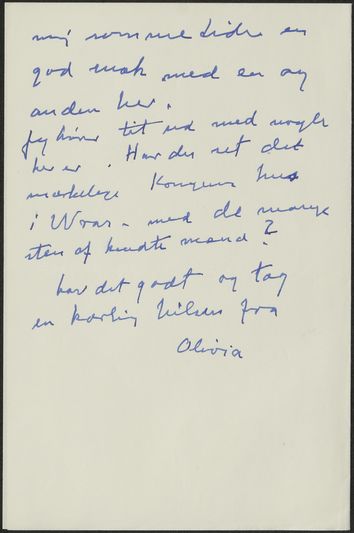 mig somme tider en
god snak med en og
anden her.
Jeg kører tit ud med nogle
her er. Har du set det
mærkelige Kongens hus
i Wraa - med de mange
sten af kendte mænd?
hav det godt og tag
en kærlig hilsen fra
Olivia